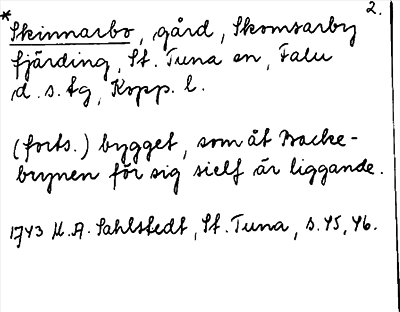 2.
*Skinnarbo, gård, Skomsarby
fjärding, St. Tuna sn, Falu
d.s. tg, Kopp. l.
(forts.) bygget, som åt Backe-
brynen för sig sielf är liggande.
1743 U.A. Sahlstedt, St. Tuna, s. 45, 46.